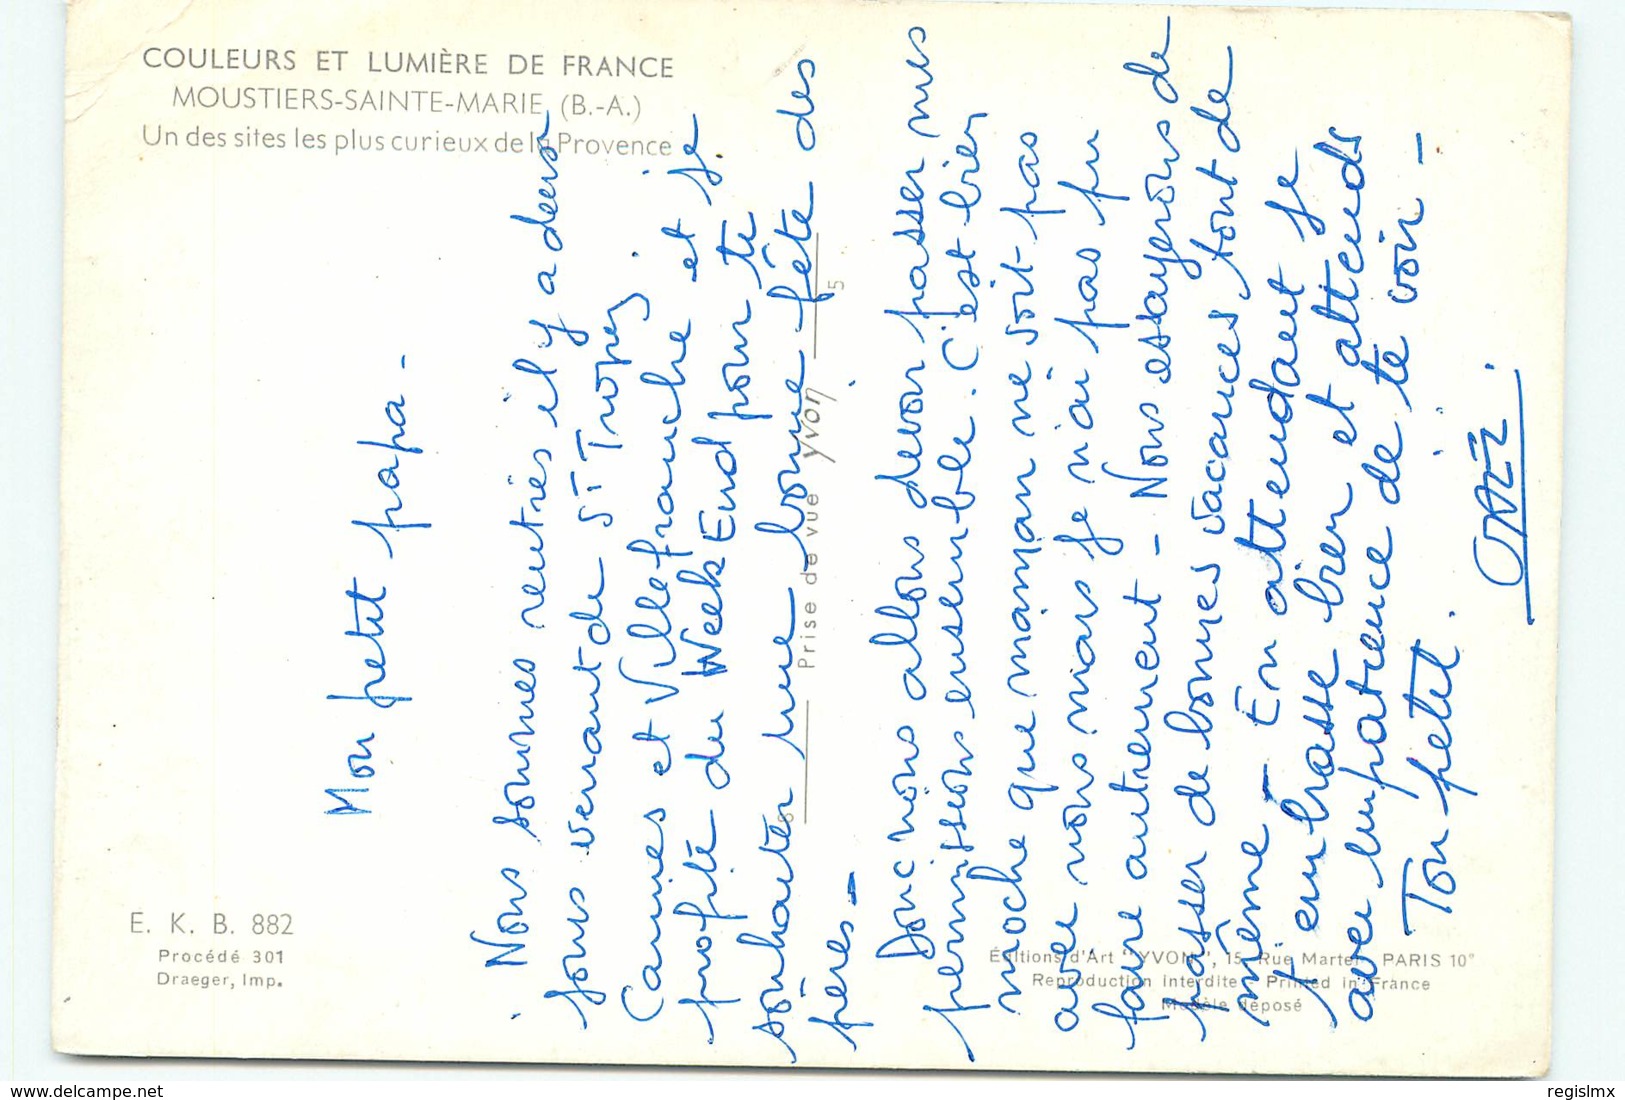 COULEURS ET LUMIÈRE DE FRANCE
MOUSTIERS-SAINTE-MARIE (B.-A.)
Un des sites les plus curieux de la Provence
Mon petit papa -
Nous sommes rentrés il y a deux
jours venant de St Tropez,
Cannes et Villefranche et je
profite du Week End pour te
souhaiter une bonne fête des
pères -
Donc nous allons devoir passer nos
permissions ensemble. C'est bien
moche que maman ne soit pas
avec nous mais je n'ai pas pu
faire autrement - Nous essayerons de
passer de bonnes vacances tout de
même - En attendant je
t'embrasse bien et attends
avec impatience de te voir -
Ton petit.
Prise de vue Yvon
5
E. K. B. 882
Procédé 301
Draeger, Imp.
Éditions d'Art "YVON", 15, Rue Martel, PARIS 10e
Reproduction interdite - Printed in France
Modèle déposé
regislmx